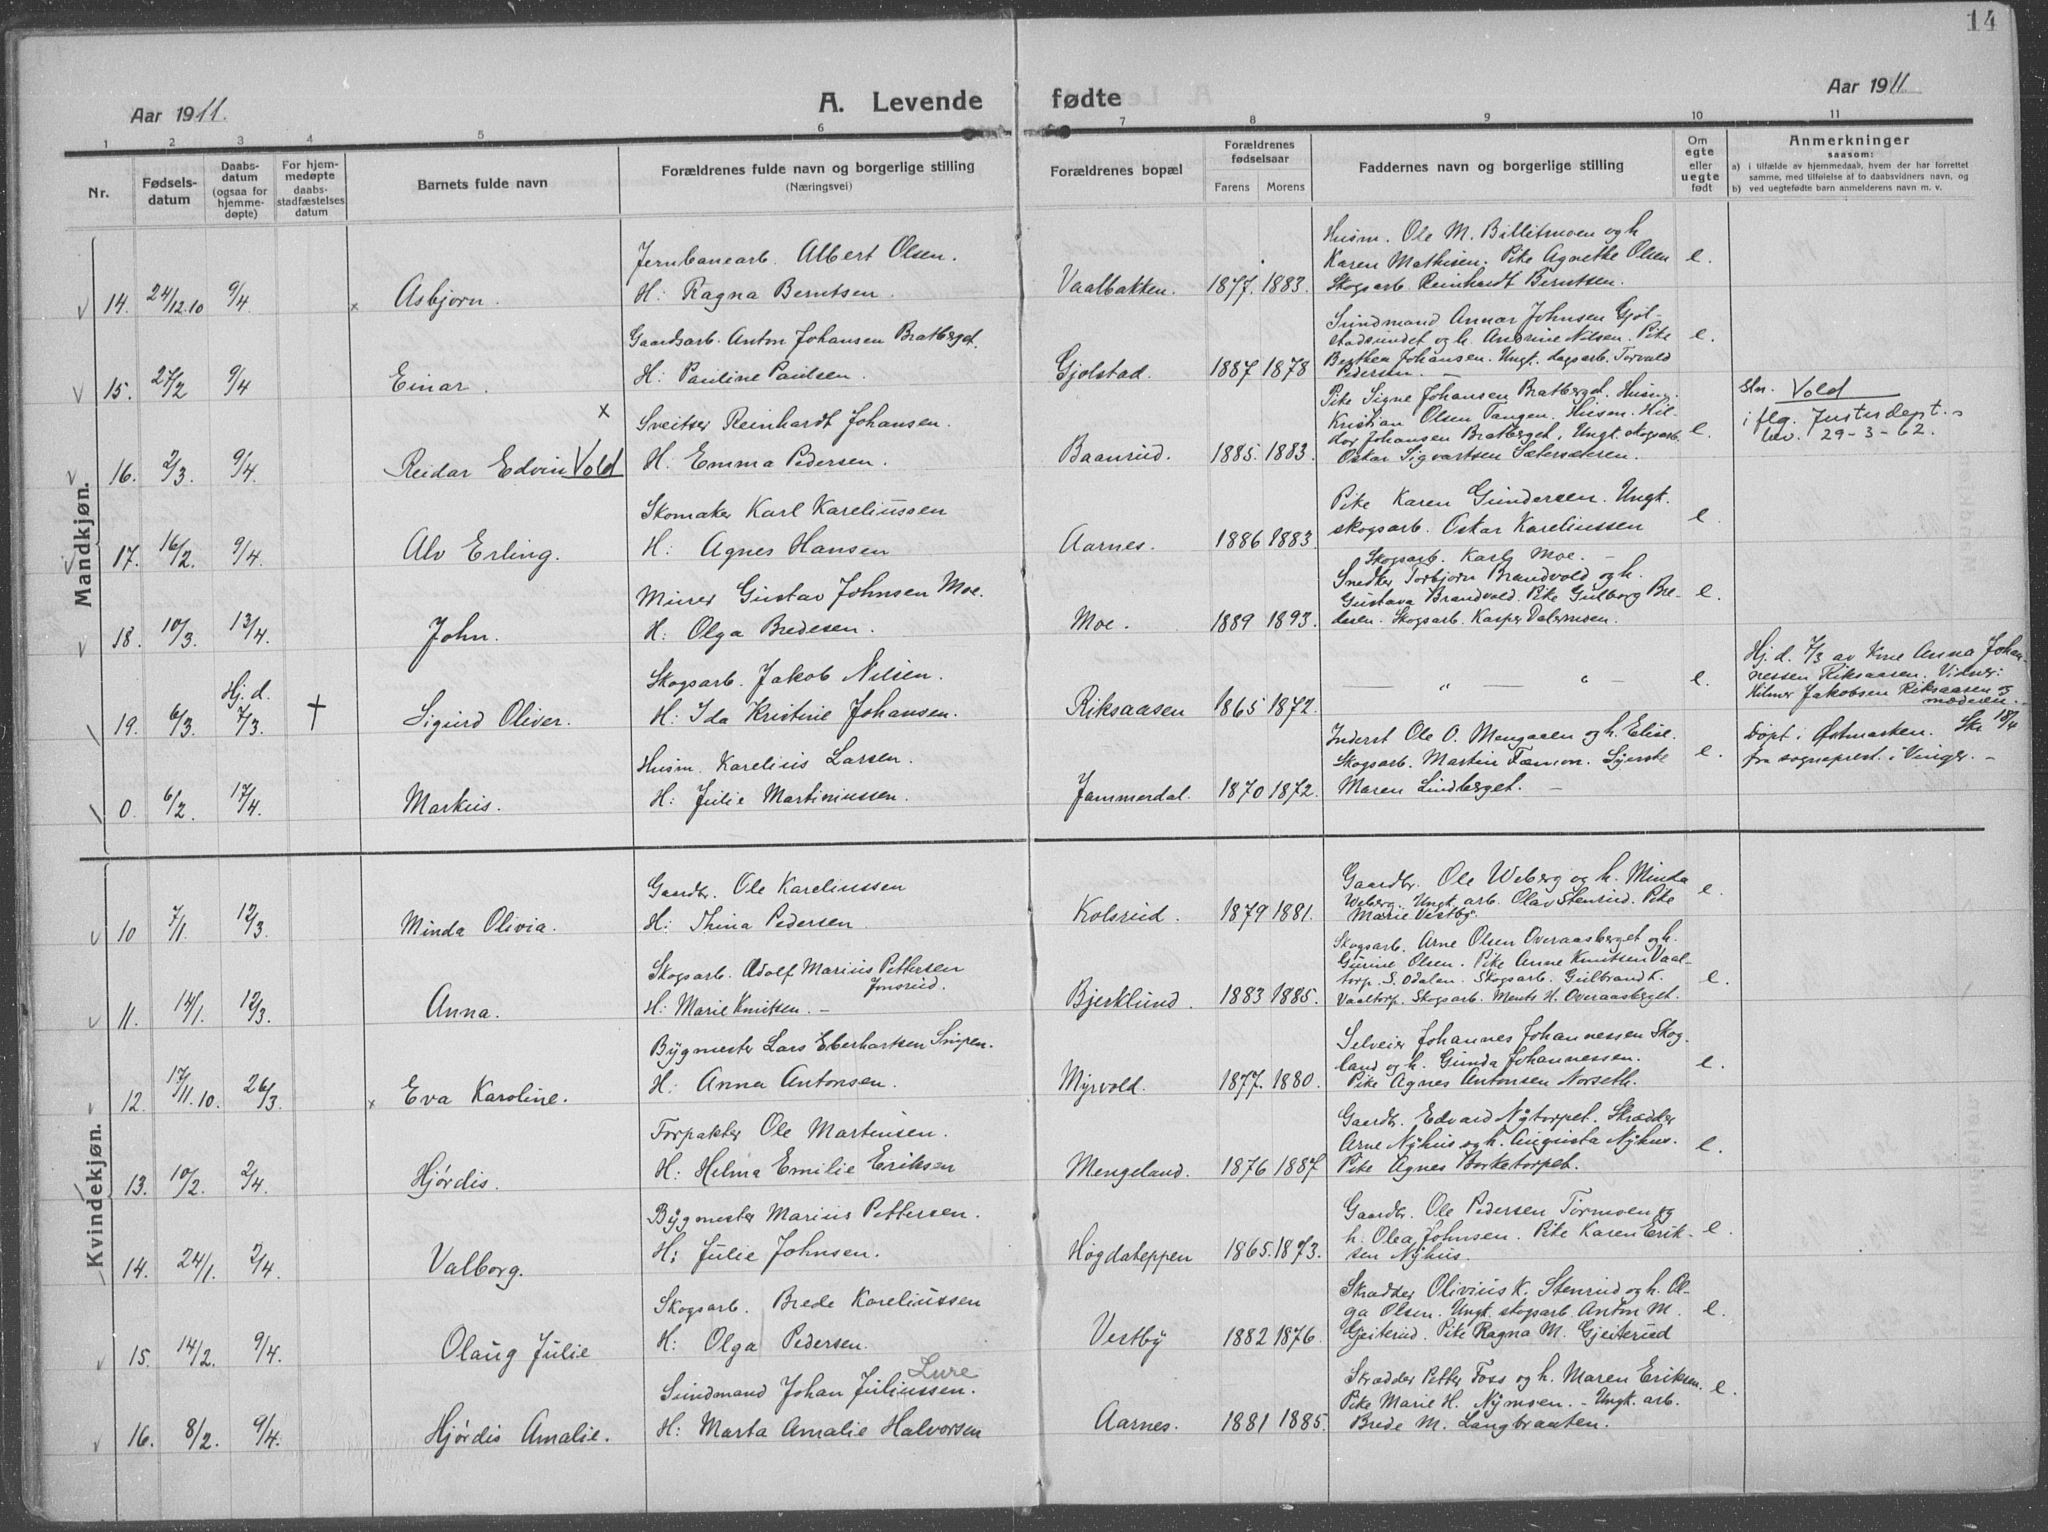 14
Aar 1911.
A. Levende fødte
Aar 1911
1 2 3 4 5 6 7 8 9 10 11
Nr.
Fødsels-
datum
Daabs-
datum
(ogsaa for
hjemme-
døpte)
For hjem-
medøpte
daabs-
stadfæstelses
datum
Barnets fulde navn
Forældrenes fulde navn og borgerlige stilling
(Næringsvei)
Forældrenes bopæl
Forældrenes
fødselsaar
Farens Morens
Faddernes navn og borgerlige stilling
Om
egte
eller
uegte
født
Anmerkninger
saasom:
a) i tilfælde av hjemmedaab, hvem der har forrettet
samme, med tilføielse af to daabsvidners navn, og
b) ved uegtefødte barn anmelderens navn m. v.
Mandkjøn.
14. 24/12.10 9/4 x Asbjørn.
Jernbanearb. Albert Olsen.
H: Ragna Berntsen.
Vaalbakken. 1877. 1883.
Husm. Ole M. Billitmoen og h
Karen Mathisen. Pike Agnethe Olsen
Skogsarb Reinhardt Berntsen.
e.
15. 27/2 9/4 Einar.
Gaardsarb. Anton Johansen Bratberget.
H: Pauline Paulsen.
Gjølstad. 1887 1878
Sundmand Annar Johnsen Gjøl-
stadsundet og h. Andrine Nilsen. Pike
Berthea Johansen. Ungk. dagsarb. Torvald
Pedersen. —
e.
16. 2/3 9/4 Reidar Edvin Vold
x
Sveitser Reinhardt Johansen.
H. Emma Pedersen.
Baanrud. 1885. 1883.
Pike Signe Johansen Bratberget. Husm.
Kristian Olsen Tangen. Husm. Hil-
dor Johansen Bratberget, Ungk. skogsarb.
Oskar Sigvartsen Sætersæteren.
e.
Sln. Vold
i flg. Justisdept.s
bev. 29-3-62.
17. 16/2. 9/4. Alv Erling.
Skomaker Karl Kareliussen
H: Agnes Hansen
Aarnes. 1886 1883.
Pike Karen Gundersen. Ungk.
skogsarb. Oskar Kareliussen
Skogsarb. Karl Moe. —
e.
18. 10/3. 13/4. John.
Murer Gustav Johnsen Moe.
H: Olga Bredesen.
Moe. 1889 1893.
Snedker Torbjørn Brandvold og h.
Gustava Brandvold. Pike Gulborg Bre-
desen. Skogsarb. Kasper Dalermoen.
e.
19. 6/3. Hj. d. 7/3. † Sigurd Oliver.
Skogsarb. Jakob Nilsen.
H: Ida Kristine Johansen.
Riksaasen 1865 1872.
— " — " —
e.
Hj. d. 7/3 av Kone Anna Johan-
nessen Riksaasen. Vidner:
Hilmer Jakobsen Riksaasen og
moderen.
0. 6/2. 17/4. Markus.
Husm. Karelius Larsen.
H: Julie Martinussen.
Jammerdal. 1870 1872.
Inderst Ole O. Mengaaen og h. Elise.
Skogsarb. Martin Fæmon. Tjeneste
Maren Lindberget. —
e.
Døpt i Østmarken. Skr 18/4
fra sogneprest. i Vinger. —
Kvindekjøn.
10 7/1. 12/3. Minda Olivia.
Gaardbr. Ole Kareliussen
H: Thina Pedersen
Kolsrud. 1879 1881.
Gaardbr. Ole Weberg og h. Minda
Weberg. Ungk. arb. Olav Stenrud. Pike
Marie Vestby.
e.
11. 14/1. 12/3. Anna.
Skogsarb. Adolf Marius Pettersen
Jonsrud.
H: Marie Knutsen. —
Bjerklund. 1883 1885.
Skogsarb. Arne Olsen Overaasberget og h.
Gurine Olsen. Pike Anne Knutsen Vaal-
torp. S. Odalen. Skogsarb. Gulbrand K.
Vaaltorp. Skogsarb. Ments H. Overaasberget.
e.
12. 17/11. 10. 26/3. x Eva Karoline.
Bygmester Lars Eberhartsen Snipen.
H: Anna Antonsen.
Myrvold. 1877. 1880.
Selveier Johannes Johannessen Skog-
land og h. Gunda Johannessen.
Pike Agnes Antonsen Norseth.
e.
13. 10/2. 2/4. Hjørdis.
Forpakter Ole Martinsen.
H: Helma Emilie Eriksen
Mengeland. 1876 1887
Gaardbr. Edvard Nytorpet. Skrædder
Arne Nyhus og h. Augusta Nyhus.
Pike Agnes Borketorpet.
e.
14. 24/1. 2/4. Valborg.
Bygmester Marius Pettersen.
H: Julie Johnsen.
Høgdateppen 1865. 1873.
Gaardbr. Ole Pedersen Tormoen og
h. Olea Johnsen. Pike Karen Erik-
sen Nyhus.
e.
15. 14/2. 9/4. Olaug Julie
Skogsarb. Brede Kareliussen
H: Olga Pedersen.
Vestby 1882 1876.
Skrædder Olivius K. Stenrud og h. Ol-
ga Olsen. Ungk. skogsarb Anton M.
Gjeiterud. Pike Ragna M. Gjeiterud
e.
16. 8/2. 9/4. Hjørdis Amalie.
Sundmand Johan Juliussen. Lure
H: Marta Amalie Halvorsen
Aarnes. 1881 1885.
Skrædder Petter Foss og h. Maren Eriksen.
Pike Marie H. Nymoen. - Ungk. arb.
Brede M. Langbraaten.
e.